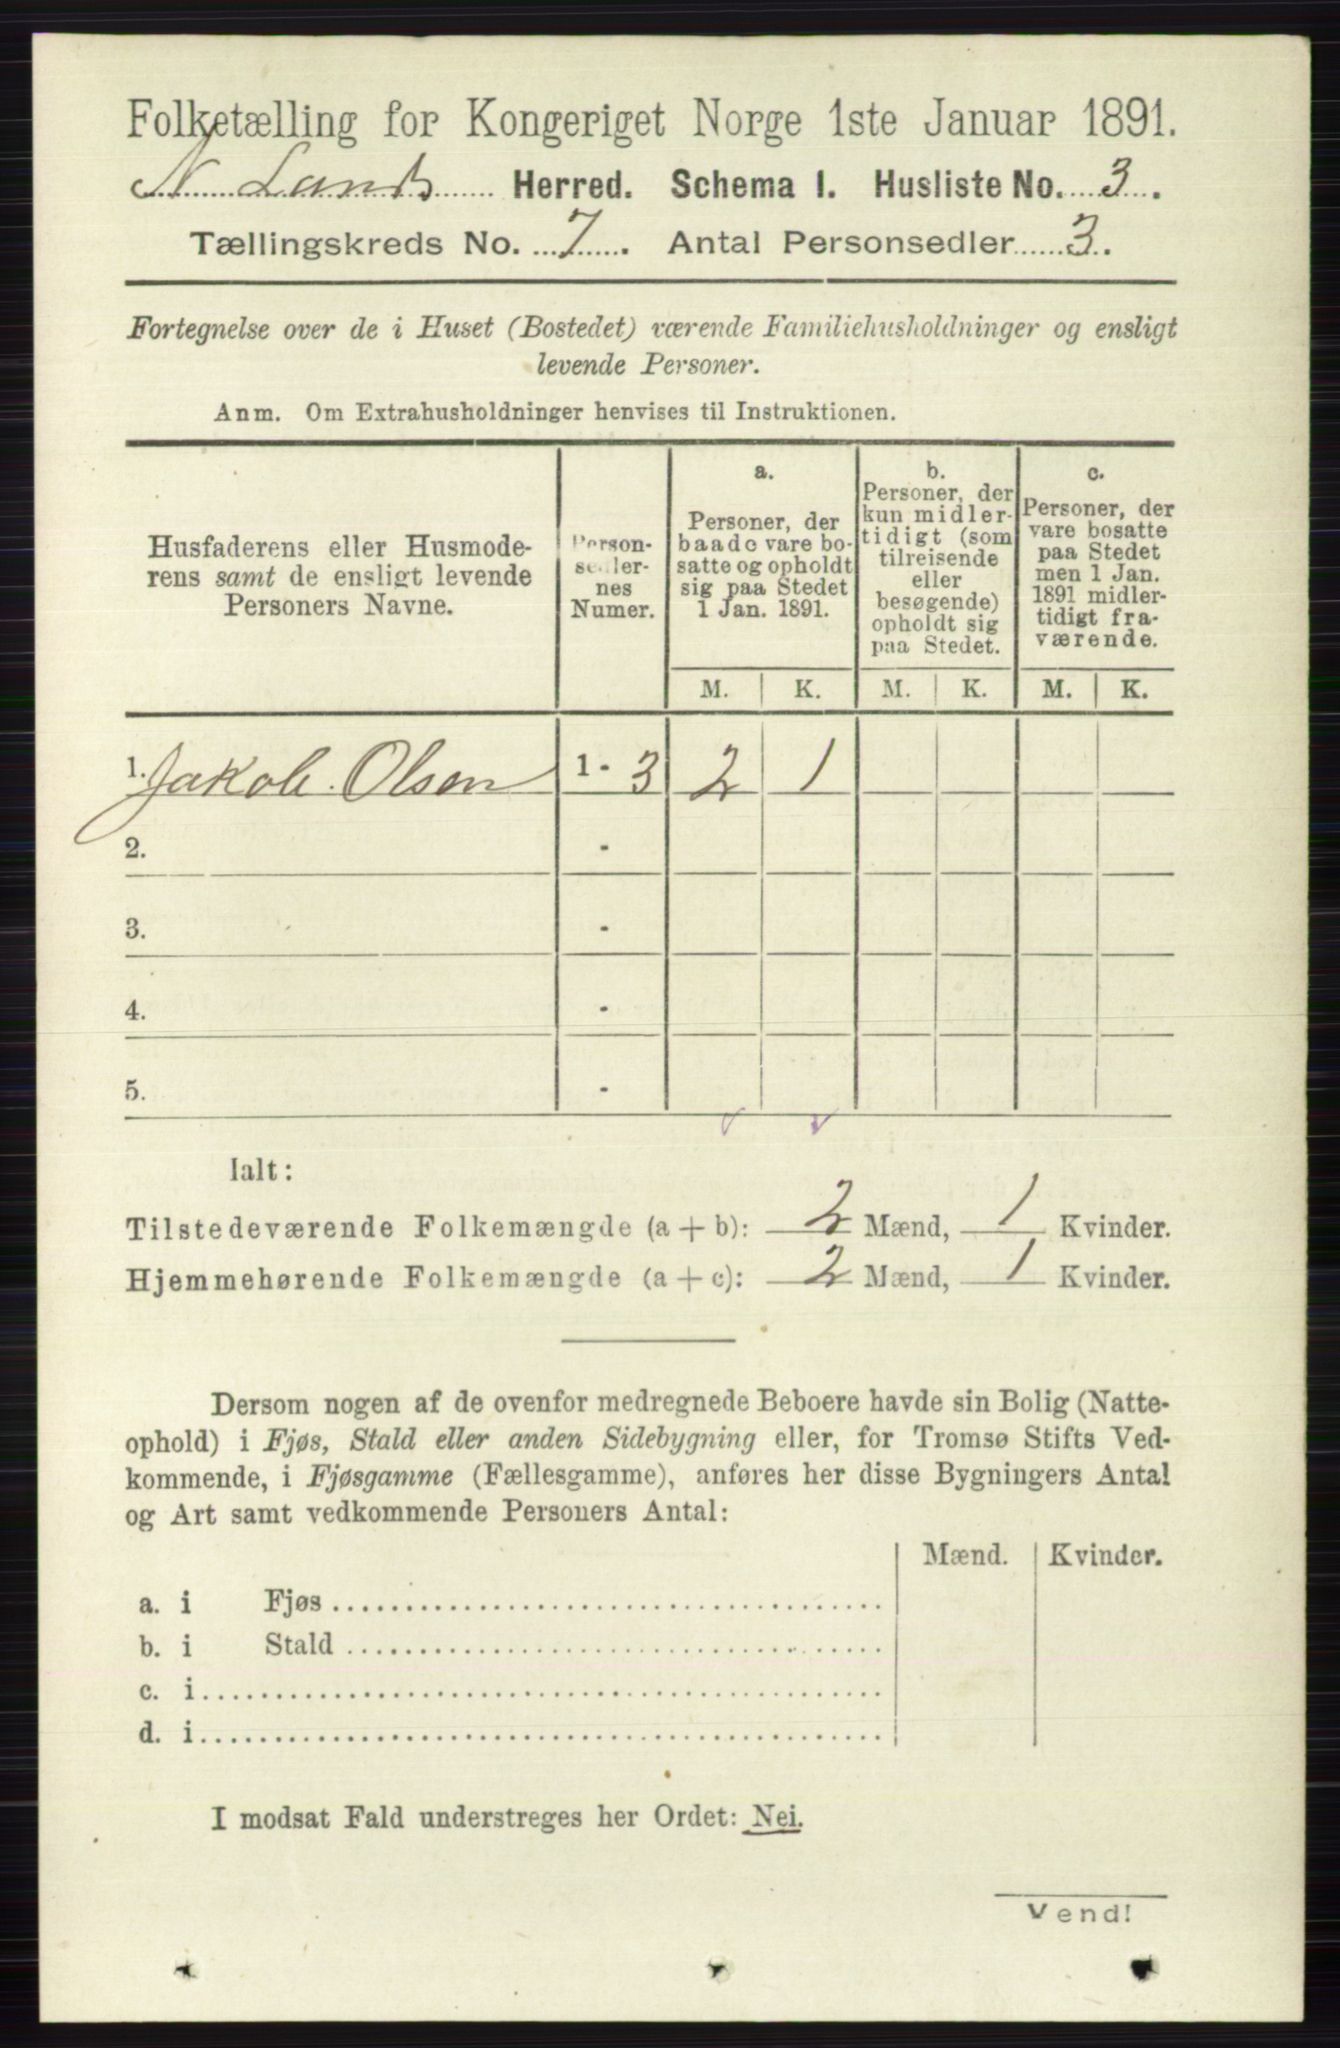 Folketælling for Kongeriget Norge 1ste Januar 1891.
N. Lands Herred. Schema I. Husliste No. 3.
Tællingskreds No. 7. Antal Personsedler 3.
Fortegnelse over de i Huset (Bostedet) værende Familiehusholdninger og ensligt
levende Personer.
Anm. Om Extrahusholdninger henvises til Instruktionen.
Husfaderens eller Husmode-
rens samt de ensligt levende
Personers Navne.
Person-
sedler-
nes
Numer.
a.
Personer, der
baade vare bo-
satte og opholdt
sig paa Stedet
1 Jan. 1891.
b.
Personer, der
kun midler-
tidigt (som
tilreisende
eller
besøgende)
opholdt sig
paa Stedet.
c.
Personer, der
vare bosatte
paa Stedet
men 1 Jan.
1891 midler-
tidigt fra-
værende.
M. K. M. K. M. K.
1. Jakob. Olsen 1 - 3 2 1
2. -
3. -
4. -
5. -
Ialt:
Tilstedeværende Folkemængde (a + b): 2 Mænd, 1 Kvinder.
Hjemmehørende Folkemængde (a + c): 2 Mænd, 1 Kvinder.
Dersom nogen af de ovenfor medregnede Beboere havde sin Bolig (Natte-
ophold) i Fjøs, Stald eller anden Sidebygning eller, for Tromsø Stifts Ved-
kommende, i Fjøsgamme (Fællesgamme), anføres her disse Bygningers Antal
og Art samt vedkommende Personers Antal:
Mænd. Kvinder.
a. i Fjøs
b. i Stald
c. i
d. i
I modsat Fald understreges her Ordet: Nei.
Vend!